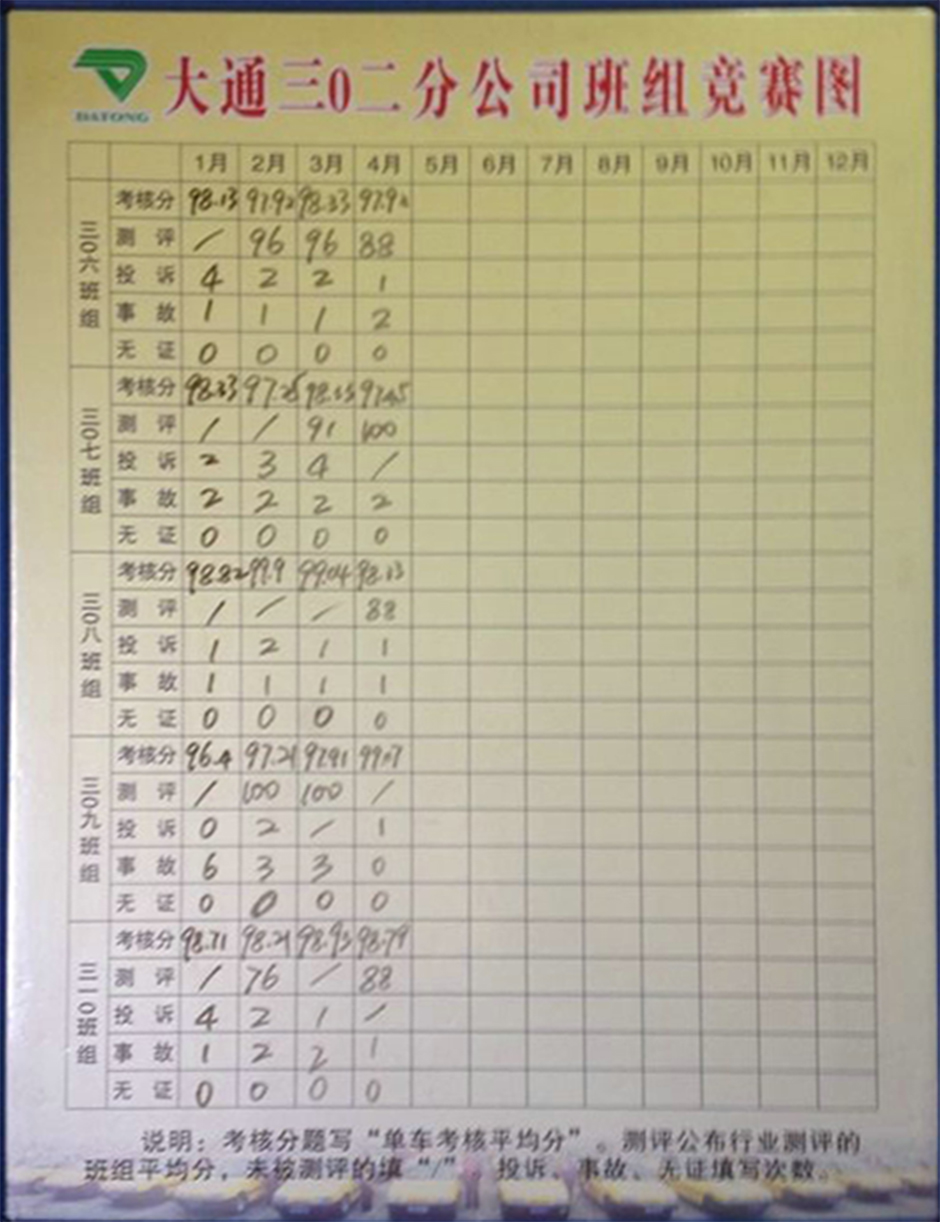 DATONG
大通三0二分公司班组竞赛图
1月 2月 3月 4月 5月 6月 7月 8月 9月 10月 11月 12月
三0六班组
考核分 98.13 97.92 98.33 97.92
测评 / 96 96 88
投诉 4 2 2 1
事故 1 1 1 2
无证 0 0 0 0
三0七班组
考核分 98.33 97.25
测评 / / 91 100
投诉 2 3 4 /
事故 2 2 2 2
无证 0 0 0 0
三0八班组
考核分 98.82 99.9 99.04 98.13
测评 / / / 88
投诉 1 2 1 1
事故 1 1 1 1
无证 0 0 0 0
三0九班组
考核分 96.4 97.21 97.91
测评 / 100 100 /
投诉 0 2 / 1
事故 6 3 3 0
无证 0 0 0 0
三一0班组
考核分 98.71 98.21 98.93 98.79
测评 / 76 / 88
投诉 4 2 1 /
事故 1 2 2 1
无证 0 0 0 0
说明：考核分题写“单车考核平均分”。测评公布行业测评的
班组平均分，未被测评的填“/”。投诉、事故、无证填写次数。